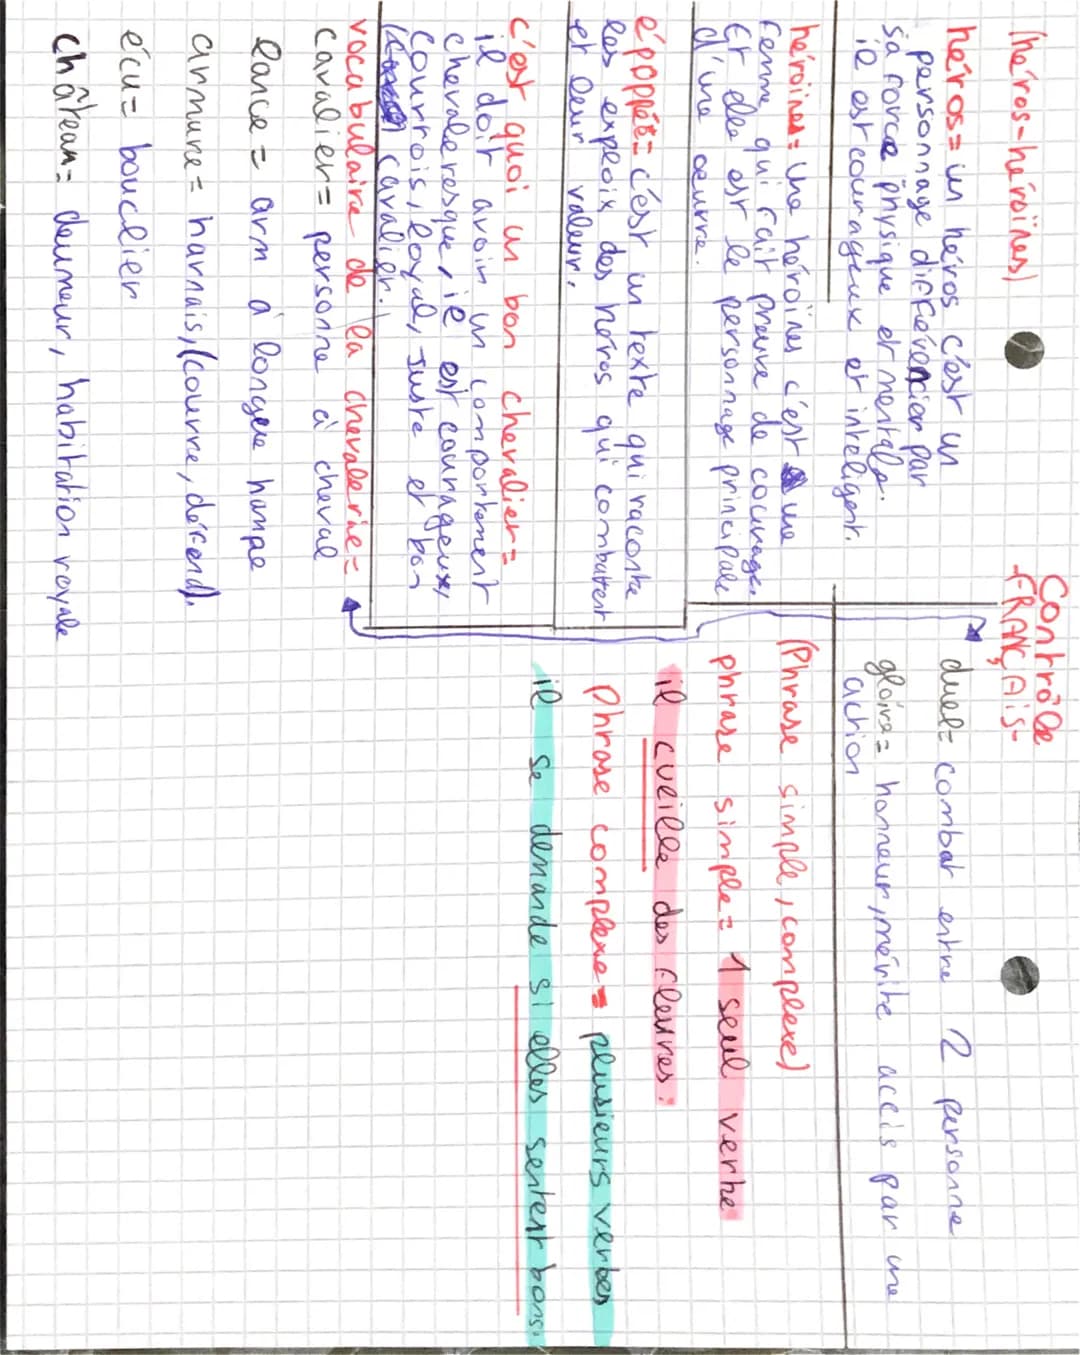 Contrôle
FRANÇAIS-
(héros-héroïnes)
héros = un héros c'est un
personnage différencier par
sa force physique et mentale.
il est courageux et inteligent.
héroïnes = une héroïnes c'est une
femme qui fait preuve de courage.
Et elle est le personnage principale
d'une oeuvre.
éppopée = c'est un texte qui raconte
les explois des héros qui combattent
et leur valeur.
c'est quoi un bon chevalier =
il doit avoir un comportement
chevaleresque, il est courageux,
courtois, loyal, juste et bon
cavalier.
vocabulaire de la chevalerie =
cavalier = personne à cheval
lance = arm à longue hampe
armure = harnais, (couvre, défend).
écu = bouclier
château = deumeur, habitation royale
duel = combat entre 2 personne
gloire = honneur, mérite accis par une
action
(Phrase simple, complexe)
phrase simple = 1 seul verbe
il cueille des fleures.
Phrase complexe = plusieurs verbes
il se demande si elles sentent bons.